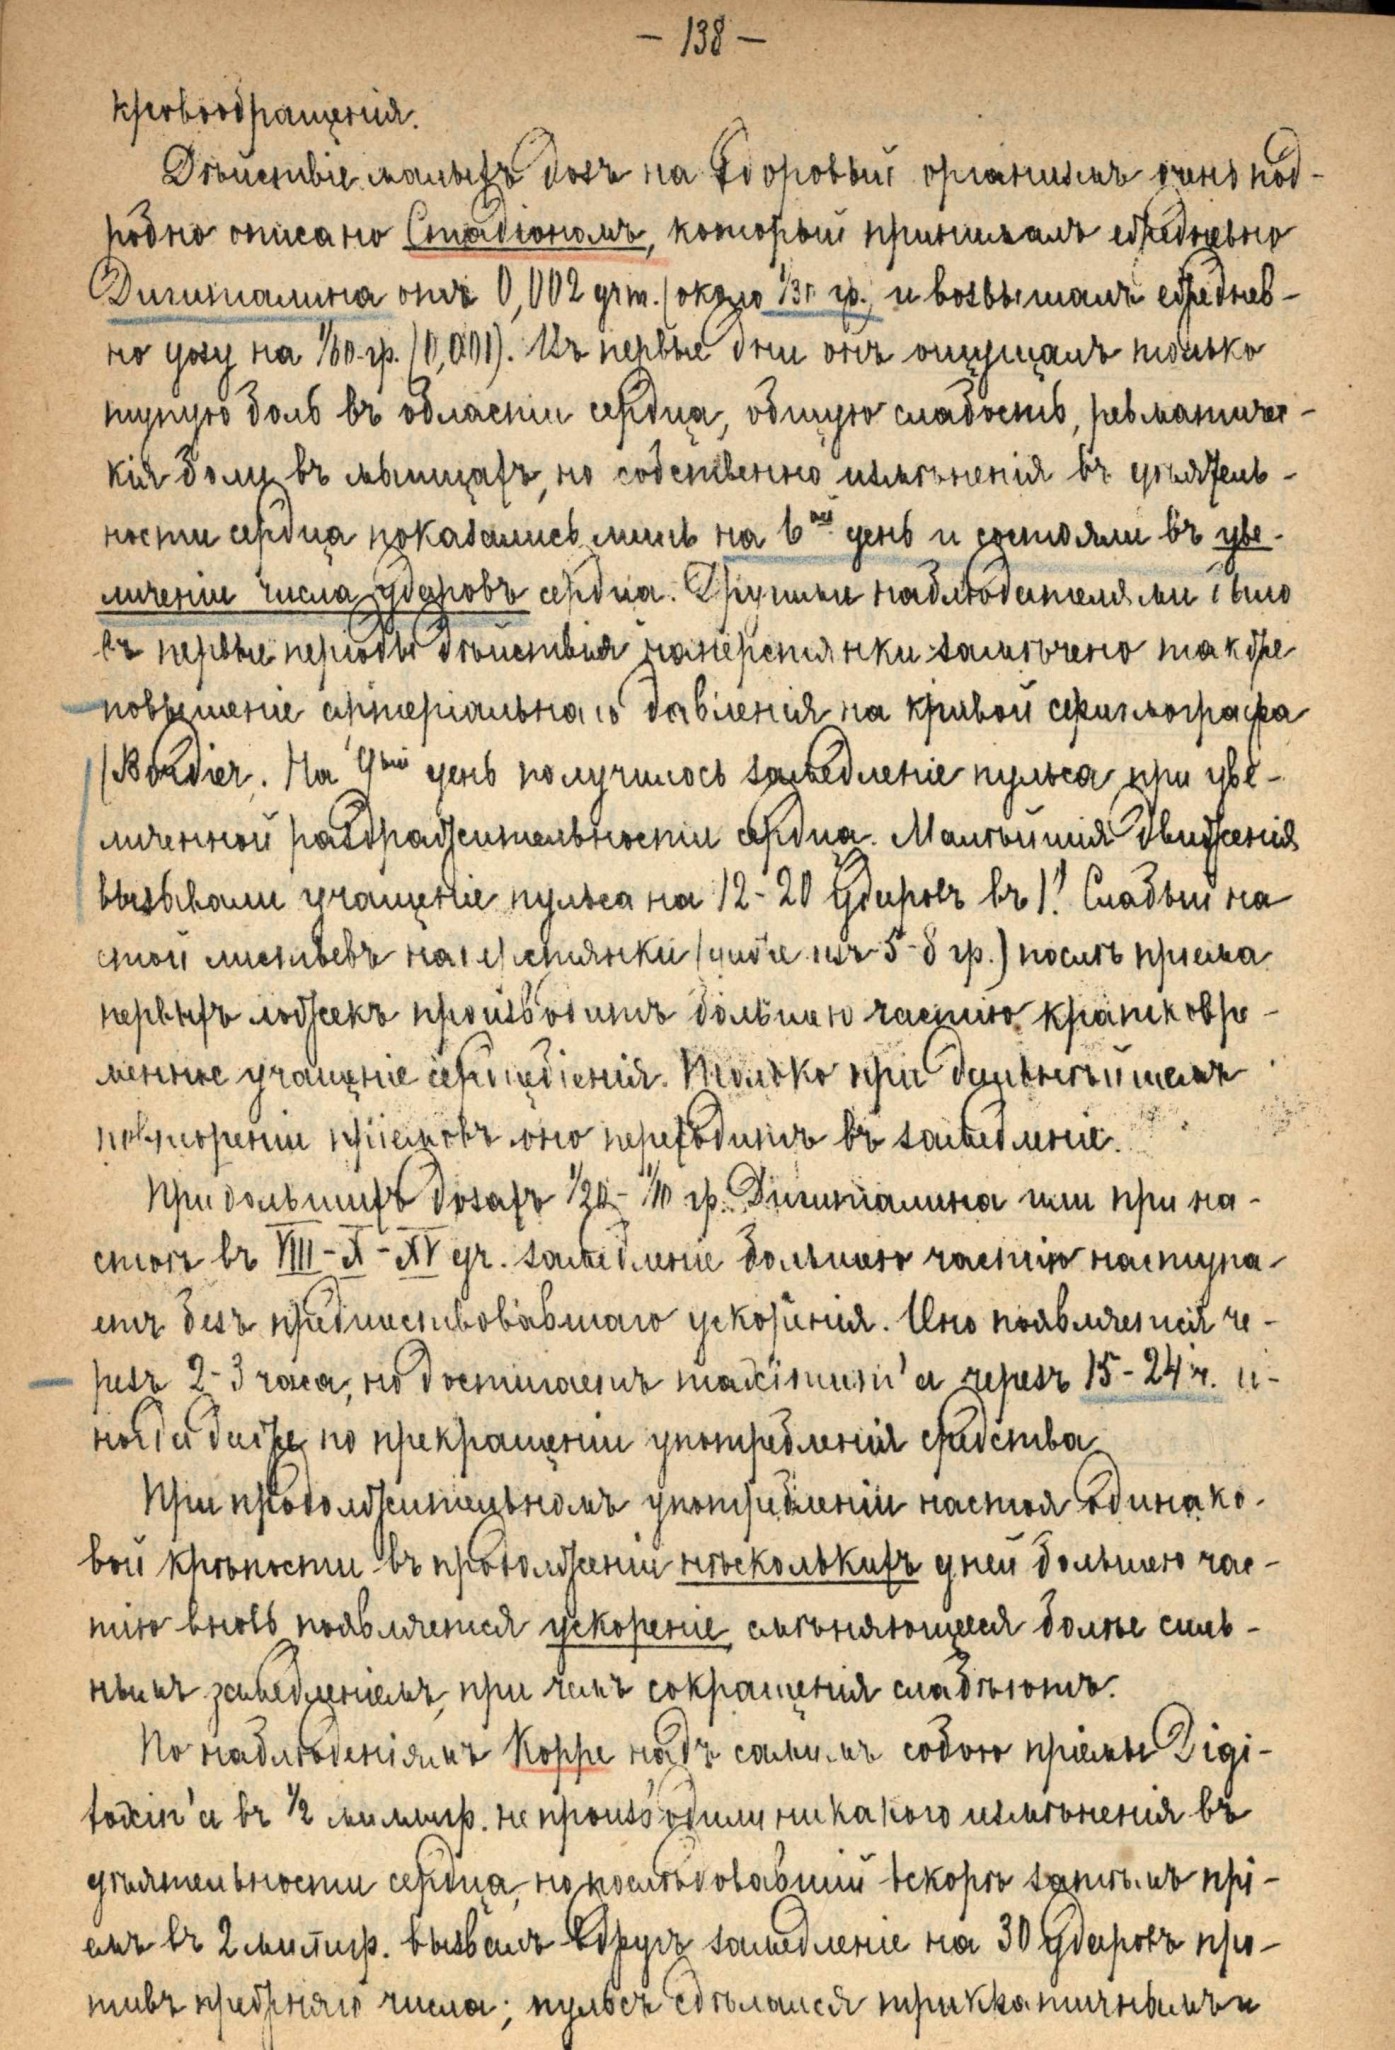 — 138 —
кровообращенія.
Дѣйствіе малыхъ дозъ на здоровый организмъ очень под-
робно описано Стадіономъ, который принималъ ежедневно
Дигиталина отъ 0,002 дгм. (около 1/30 гр., и возвышалъ ежеднев-
но дозу на 1/60 гр. (0,001). Въ первые дни онъ ощущалъ только
тупую боль въ области сердца, общую слабость, ревматичес-
кія боли въ мышцахъ, но собственно измѣненія въ дѣятель-
ности сердца показались лишь на 6ой день и состояли въ уве-
личеніи числа ударовъ сердца. Другими наблюдателями было
въ первые періоды дѣйствія наперстянки замѣчено также
повышеніе артеріальнаго давленія на кривой сфигмографа
(Bordier. На 9ый день получилось замедленіе пульса при уве-
личенной раздражительности сердца. Малѣйшія движенія
вызывали учащеніе пульса на 12-20 ударовъ въ 1'. Слабый на
стой листьевъ наперстянки (изъ 5-8 гр.) послѣ пріема
первыхъ ложекъ производитъ большею частію кратковре-
менное учащеніе сердцебіенія. Только при дальнѣйшемъ
повтореніи пріемовъ оно переходитъ въ замедленіе.
При большихъ дозахъ 1/20-1/10 гр. Дигиталина или при на-
стоѣ въ VIII-X-XV гр. замедленіе большею частію наступа-
етъ безъ предшествовавшаго ускоренія. Оно появляется че-
резъ 2-3 часа, но достигаетъ maximum'а черезъ 15-24 ч. и-
ногда даже по прекращеніи употребленія средства
При продолжительномъ употребленіи настоя одинако-
вой крѣпости въ продолженіи нѣсколькихъ дней большею час-
тію вновь появляется ускореніе, смѣняющееся болѣе силь-
нымъ замедленіемъ, при чемъ сокращенія слабѣютъ.
По наблюденіямъ Koppe надъ самимъ собою пріемы Digi-
toxin'а въ 1/2 миллигр. не производили никакого измѣненія въ
дѣятельности сердца, но послѣдовавшій вскорѣ затѣмъ прі-
емъ въ 2 миллигр. вызвалъ вдругъ замедленіе на 30 ударовъ про-
тивъ прежняго числа; пульсъ сдѣлался трикратичнымъ и